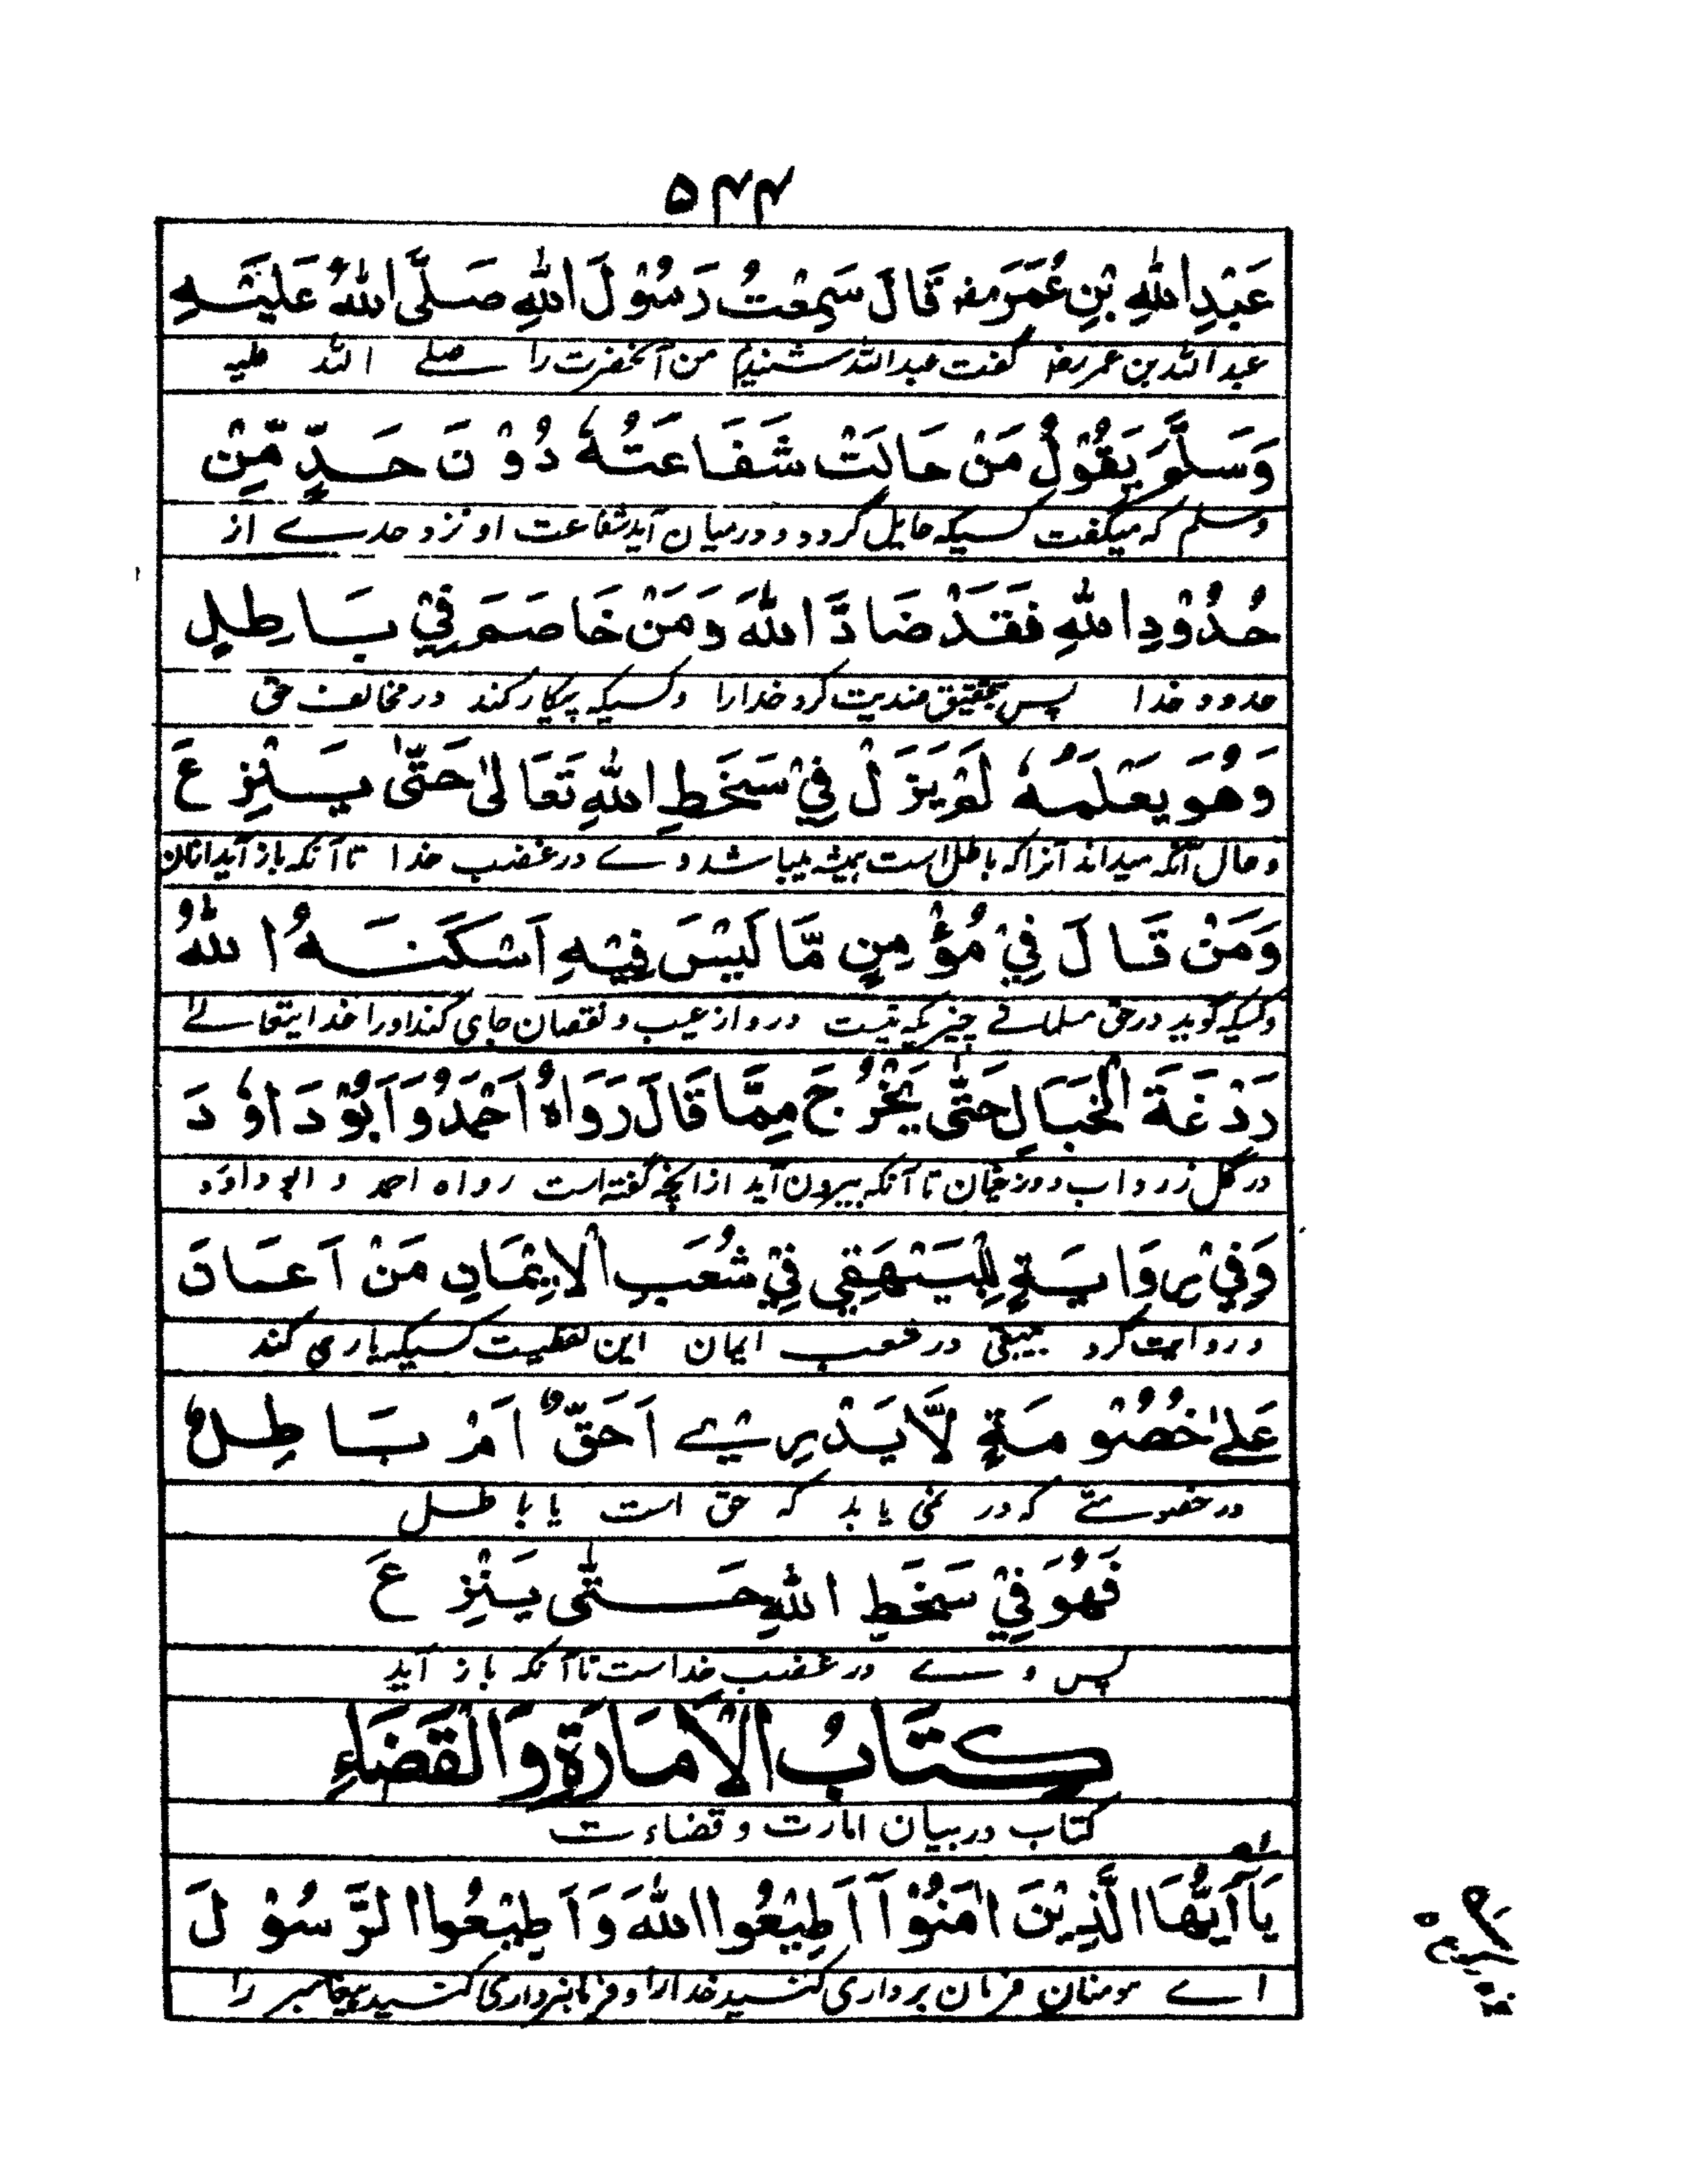 ۴۴۵
عَبْدِ اللّٰهِ بْنِ عُمَرَ رضه قَالَ سَمِعْتُ رَسُوْلَ اللّٰهِ صَلَّى اللّٰهُ عَلَيْهِ
عبد الله بن عمر رضه گفت عبد الله شنیدم من آنحضرت را صلے الله علیه
وَسَلَّمَ يَقُوْلُ مَنْ حَالَتْ شَفَاعَتُهٗ دُوْنَ حَدٍّ مِّنْ
وسلم که میگفت کسیکه حایل گردد و درمیان آید شفاعت او نزد حدے از
حُدُوْدِ اللّٰهِ فَقَدْ ضَادَّ اللّٰهَ وَمَنْ خَاصَمَ فِيْ بَاطِلٍ
حدود خدا پس بتحقیق ضدیت کرد خدا را و کسیکه پیکار کند در مخالف حق
وَهُوَ يَعْلَمُهٗ لَمْ يَزَلْ فِيْ سَخَطِ اللّٰهِ تَعَالٰى حَتّٰى يَنْزِعَ
و حال آنکه میداند آنرا که باطل است همیشه میباشد وے در غضب خدا تا آنکه باز آید ازان
وَمَنْ قَالَ فِيْ مُؤْمِنٍ مَّا لَيْسَ فِيْهِ اَسْكَنَهُ اللّٰهُ
و کسیکه گوید در حق مسلمانے چیزیکه نیست درو از عیب و نقصان جای کند او را خدایتعالے
رَدْغَةَ الْخَبَالِ حَتّٰى يَخْرُجَ مِمَّا قَالَ رَوَاهُ اَحْمَدُ وَاَبُوْ دَاوٗدَ
در گل زرداب دوزخیان تا آنکه بیرون آید از آنچه گفته است رواه احمد و ابو داود
وَفِيْ رِوَايَةٍ لِلْبَيْهَقِي فِيْ شُعَبِ الْاِيْمَانِ مَنْ اَعَانَ
و روایت کرد بیهقی در شعب ایمان این لفظیست کسیکه یاری کند
عَلٰى خُصُوْمَةٍ لَّا يَدْرِيْ اَحَقٌّ اَمْ بَاطِلٌ
در خصومتے که در نمی یابد که حق است یا باطل
فَهُوَ فِيْ سَخَطِ اللّٰهِ حَتّٰى يَنْزِعَ
پس وے در غضب خداست تا آنکه باز آید
كِتَابُ الْاَمَارَةِ وَالْقَضَاءِ
کتاب در بیان امارت و قضاءت
يَآ اَيُّهَا الَّذِيْنَ اٰمَنُوْآ اَطِيْعُوا اللّٰهَ وَاَطِيْعُوا الرَّسُوْلَ
اے مومنان فرمان برداری کنید خدا را و فرمانبرداری کنید پیغامبر را